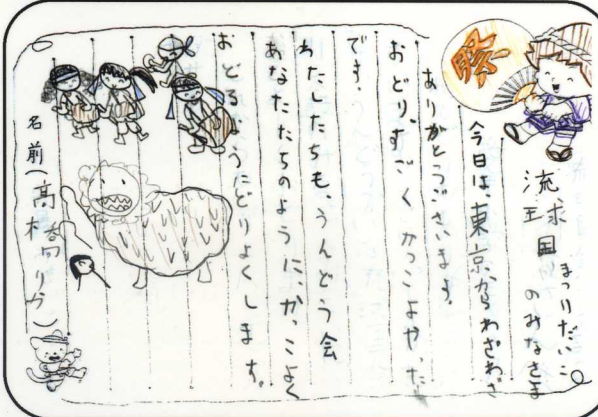 祭
琉球国
まつりだいこ
のみなさま
今日は、東京からわざわざ
ありがとうございます。
おどりすごくかっこよかった
です。
わたしたちも、うんどう会
あなたたちのように、かっこよく
おどるようにどりょくします。
名前(高橋りか)